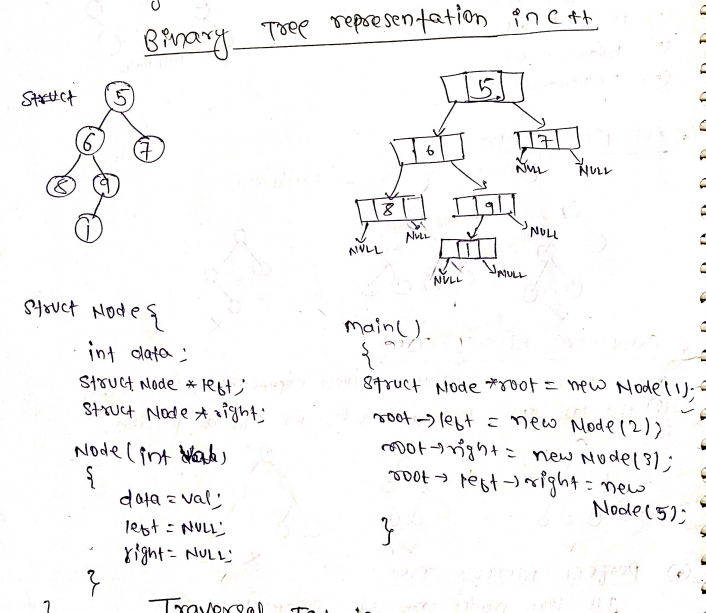 Binary Tree representation in C++
5
6
7
8
9
1
5
6
7
NULL
NULL
8
9
NULL
NULL
NULL
1
NULL
NULL
Struct Node {
int data;
Struct Node * left;
Struct Node * right;
Node (int val)
{
data = val;
left = NULL;
right = NULL;
}
main()
{
Struct Node *root = new Node(1);
root → left = new Node(2);
root → right = new Node(3);
root → left → right = new
Node(5);
}
Traversal